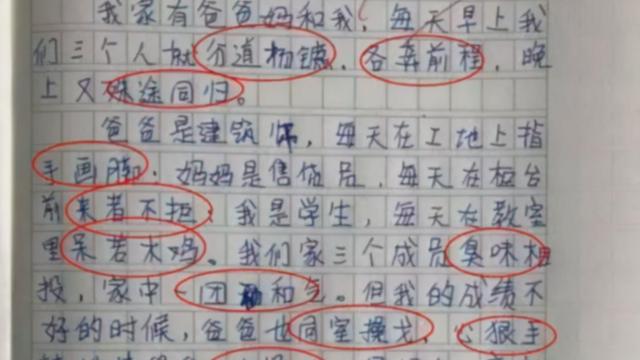 我家有爸爸妈和我，每天早上我
们三个人就分道杨镳，各奔前程，晚
上又殊途同归。
爸爸是建筑师，每天在工地上指
手画脚；妈妈是售货员，每天在柜台
前来者不拒；我是学生，每天在教室
里呆若木鸡。我们家三个成员臭味相
投，家中一团和气。但我的成绩不
好的时候，爸爸也同室操戈，心狠手